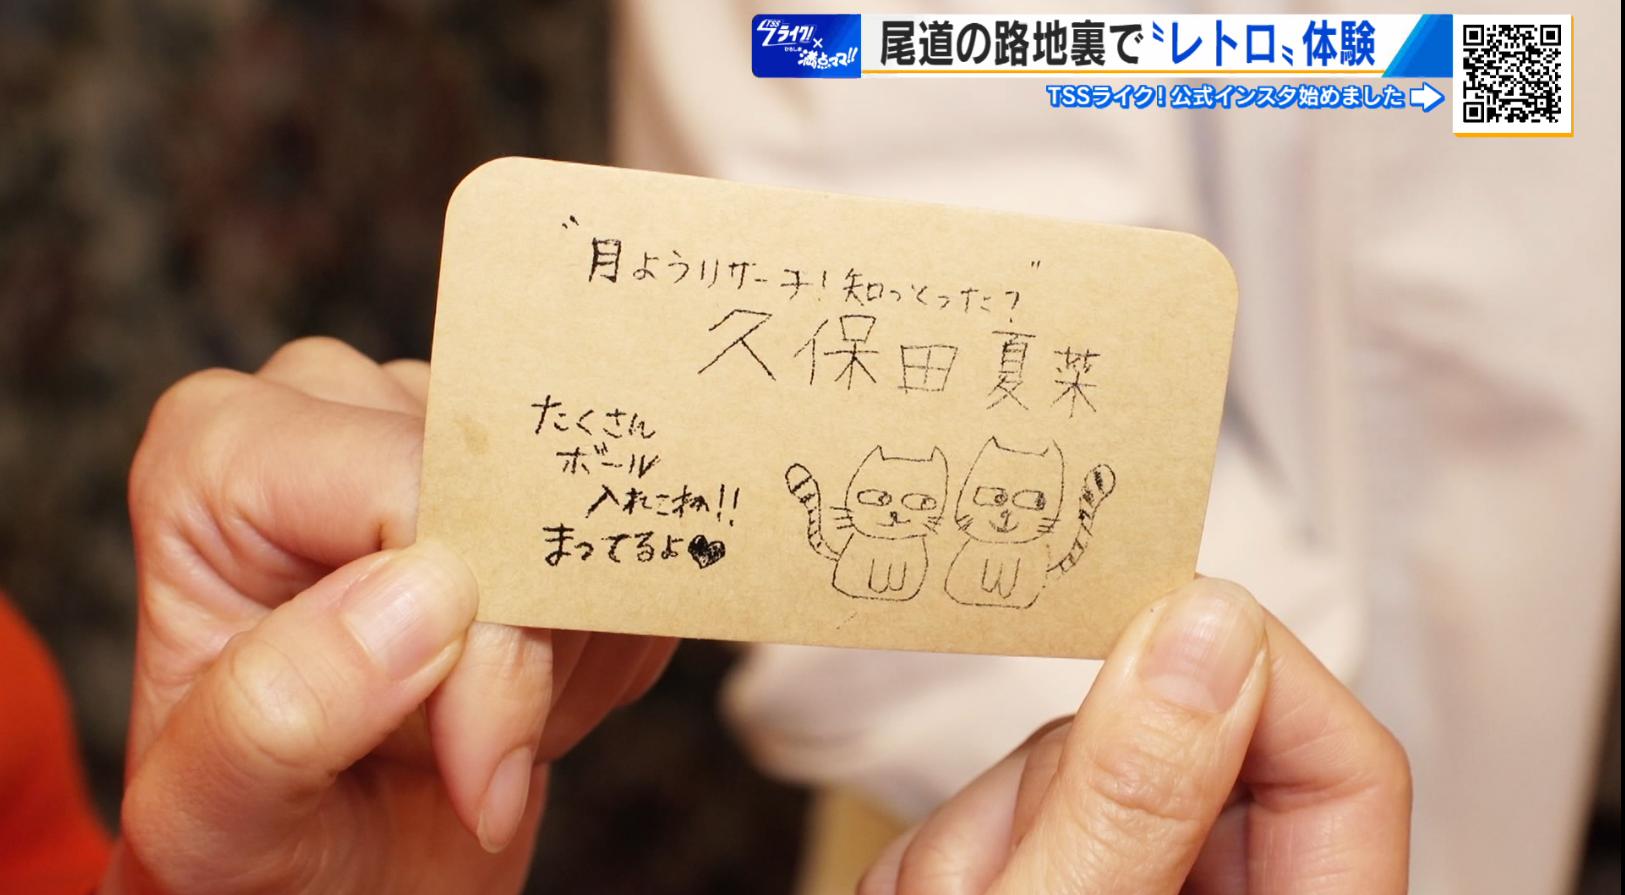 TSSライク!
ひろしま
×
満点ママ!!
尾道の路地裏で〝レトロ〟体験
TSSライク!公式インスタ始めました
〝月ようリサーチ!知っとった?〟
久保田夏菜
たくさん
ボール
入れこわ!!
まってるよ